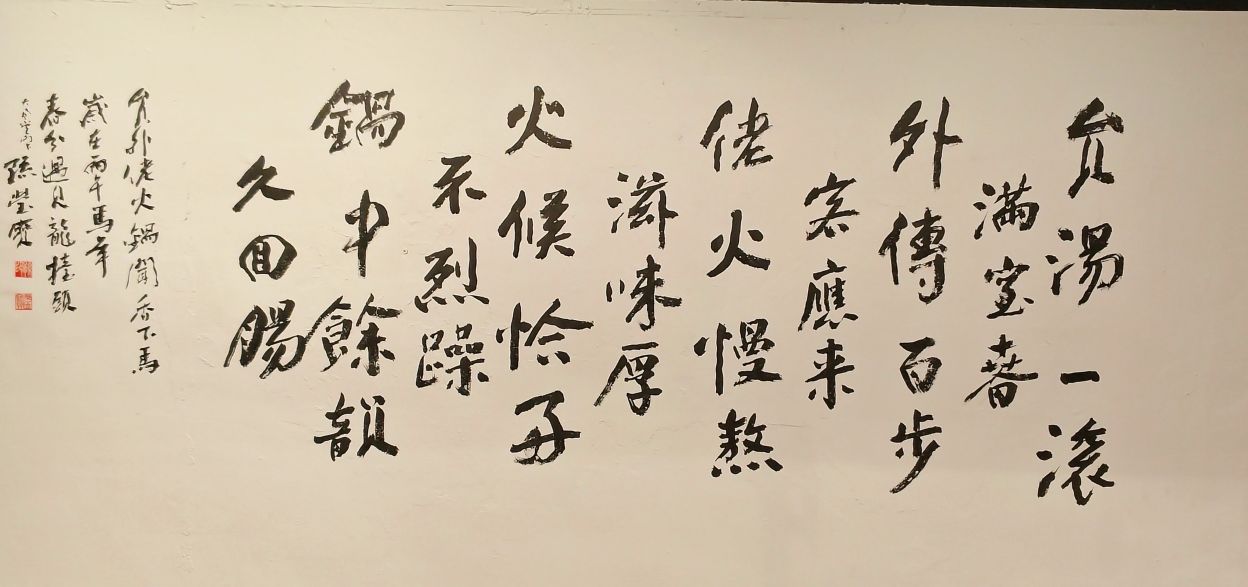 貟湯一滾
滿室春
外傳百步
客應来
佬火慢熬
滋味厚
火候恰好
不烈躁
鍋中餘韻
久囬腸
貟外佬火鍋聞香下馬
歲在丙午馬年
春分過見龍擡頭
孫瑩